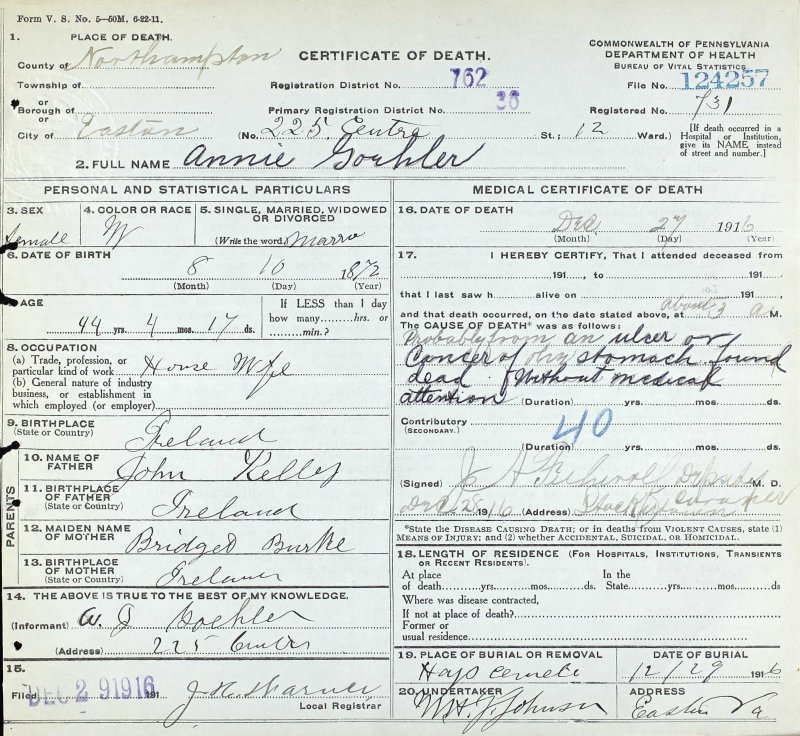 Form V. S. No. 5—50M. 6-22-11.
1. PLACE OF DEATH.
County of Northampton
Township of
or
Borough of
or
City of Easton
CERTIFICATE OF DEATH.
Registration District No. 762
Primary Registration District No. 36
(No. 225 Centre St.; 12 Ward.)
COMMONWEALTH OF PENNSYLVANIA
DEPARTMENT OF HEALTH
BUREAU OF VITAL STATISTICS.
File No. 124257
Registered No. 731
[If death occurred in a
Hospital or Institution,
give its NAME instead
of street and number.]
2. FULL NAME Annie Goehler
PERSONAL AND STATISTICAL PARTICULARS
3. SEX
female
4. COLOR OR RACE
W
5. SINGLE, MARRIED, WIDOWED
OR DIVORCED
(Write the word)
6. DATE OF BIRTH
8 10 1872
(Month) (Day) (Year)
7. AGE
44 yrs. 4 mos. 17 ds.
If LESS than 1 day
how many hrs. or
min.?
8. OCCUPATION
(a) Trade, profession, or
particular kind of work House Wife
(b) General nature of industry
business, or establishment in
which employed (or employer)
9. BIRTHPLACE
(State or Country) Ireland
PARENTS
10. NAME OF
FATHER John Kelley
11. BIRTHPLACE
OF FATHER
(State or Country) Ireland
12. MAIDEN NAME
OF MOTHER Bridget Burke
13. BIRTHPLACE
OF MOTHER
(State or Country) Ireland
14. THE ABOVE IS TRUE TO THE BEST OF MY KNOWLEDGE.
(Informant) Goehler
(Address) 225 Centre
15.
Filed DEC 29 1916 191
Local Registrar
MEDICAL CERTIFICATE OF DEATH
16. DATE OF DEATH
Dec 27 1916
(Month) (Day) (Year)
17. I HEREBY CERTIFY, That I attended deceased from
191 , to 191
that I last saw h alive on 191
and that death occurred, on the date stated above, at about 3 a M.
The CAUSE OF DEATH* was as follows:
Probably from an ulcer or
Cancer of the stomach found
dead Without medical
attention (Duration) yrs. mos. ds.
Contributory
(SECONDARY.)
40
(Duration) yrs. mos. ds.
(Signed) J. A. Deputy M. D.
Dec 28 1916 (Address) Coroner
*State the DISEASE CAUSING DEATH; or in deaths from VIOLENT CAUSES, state (1)
MEANS OF INJURY; and (2) whether ACCIDENTAL, SUICIDAL, OR HOMICIDAL.
18. LENGTH OF RESIDENCE (FOR HOSPITALS, INSTITUTIONS, TRANSIENTS
OR RECENT RESIDENTS).
At place
of death yrs. mos. ds.
In the
State yrs. mos. ds.
Where was disease contracted,
If not at place of death?
Former or
usual residence
19. PLACE OF BURIAL OR REMOVAL
Hays
DATE OF BURIAL
12/29 1916
20. UNDERTAKER
Johnson
ADDRESS
Easton Pa